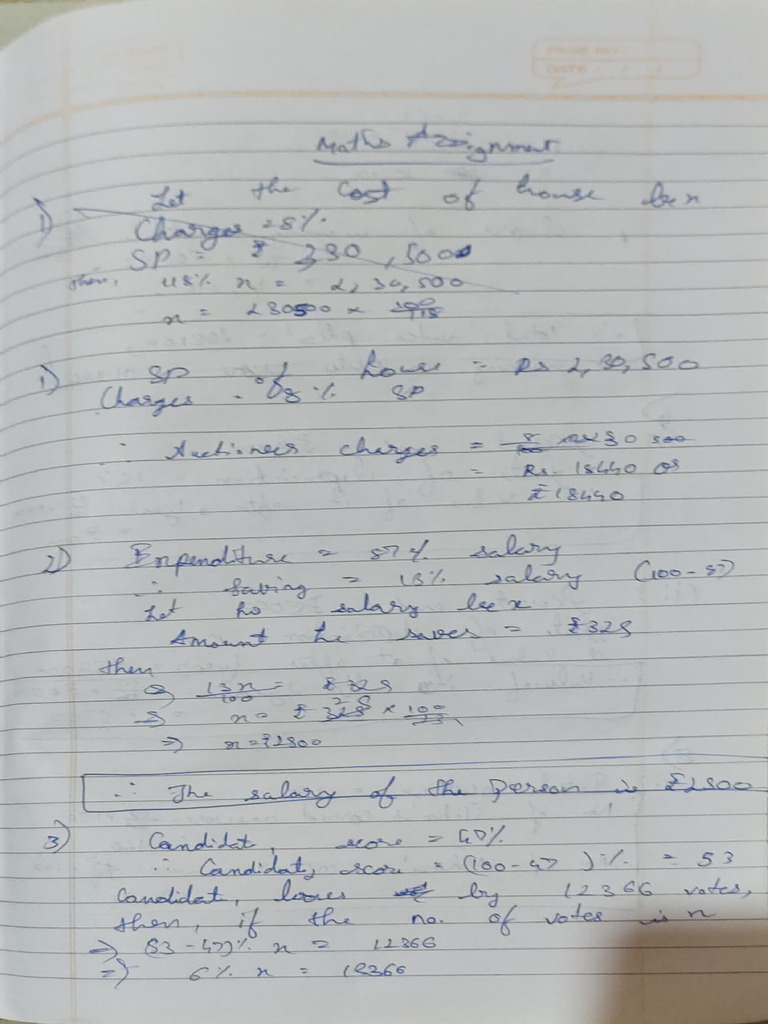 Maths Assignment
1) Let the cost of house be x
Charges = 8%
SP = ₹ 230,500
then, 118% x = 2,30,500
x = 230500 × 100/118
1) SP of house = Rs 2,30,500
Charges = 8% of SP
∴ Auctioneers charges = 8/100 × 230500
= Rs. 18440 or
₹18440
2) Expenditure = 87% salary
∴ Saving = 13% salary (100-87)
Let his salary be x
Amount he saves = ₹325
then
⇒ 13x/100 = ₹325
⇒ x = ₹ 325 × 100/13
⇒ x = ₹2500
∴ The salary of the person is ₹2500
3) Candidate, score = 47%
∴ Candidate, score = (100-47)% = 53
Candidate, loses by 12366 votes,
then, if the no. of votes is x
⇒ 53-47)% x = 12366
⇒) 6% x = 12366